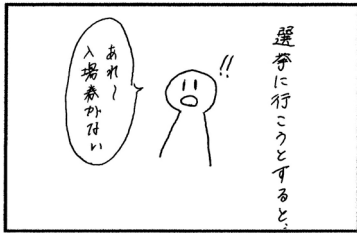 選挙に行こうとすると、
!!
あれ〜
入場券がない